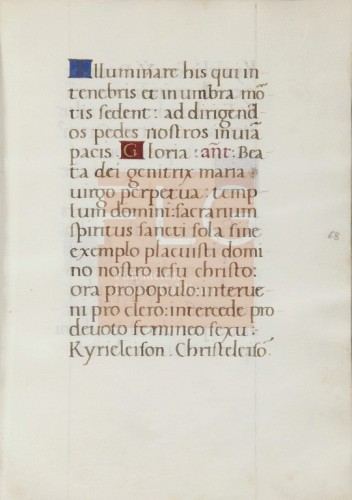 Illuminare his qui in
tenebris et in umbra mō
tis sedent: ad dirigend
os pedes nostros in uiā
pacis Gloria :añt: Bea
ta dei genitrix maria
uirgo perpetua: temp
lum domini: sacrarium
spiritus sancti sola sine
exemplo placuisti domi
no nostro iesu christo:
ora propopulo: interue
ni pro clero: intercede pro
deuoto femineo sexu:
Kyrieleison. Christeleisō
68